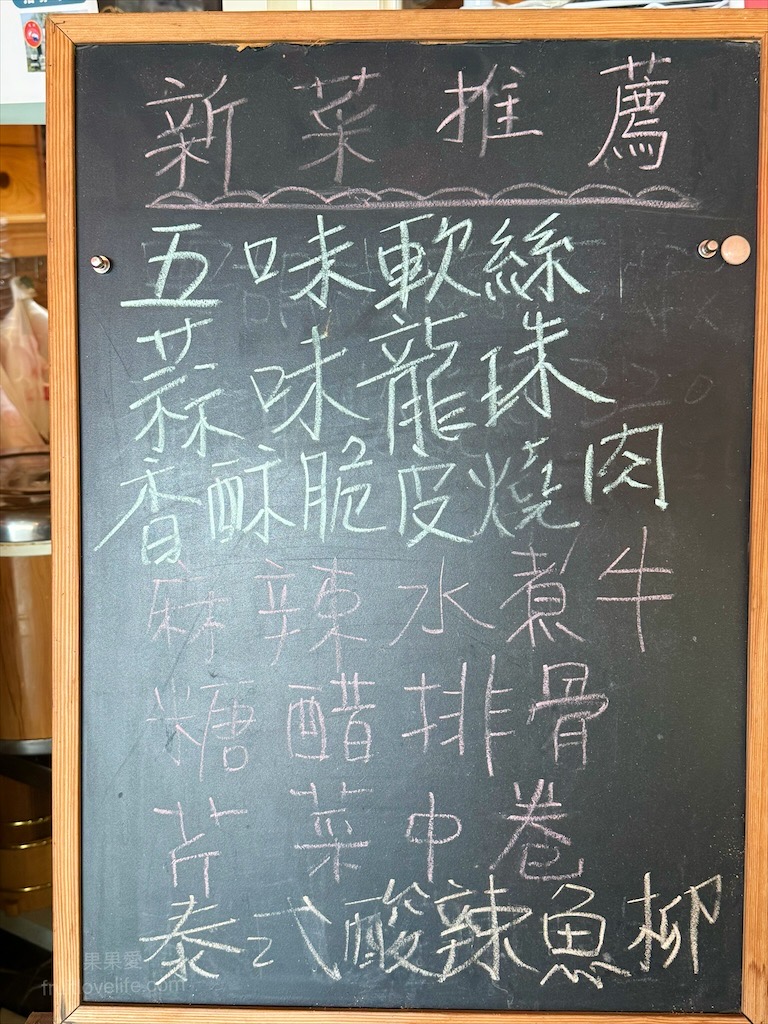 新菜推薦
五味軟絲
蒜味龍珠
香酥脆皮燒肉
麻辣水煮牛
糖醋排骨
芹菜中卷
泰式酸辣魚柳
果果愛